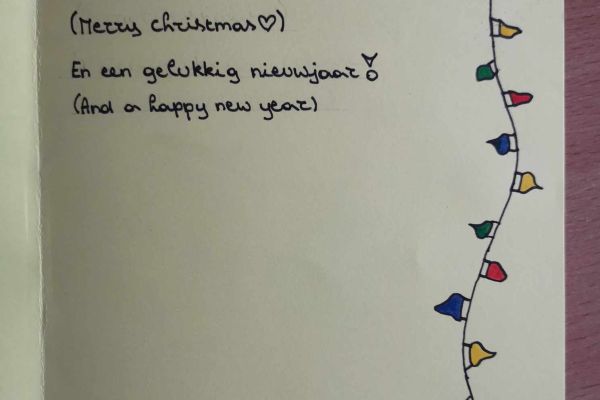 (Merry christmas♡)
En een gelukkig nieuwjaar!
(And a happy new year)